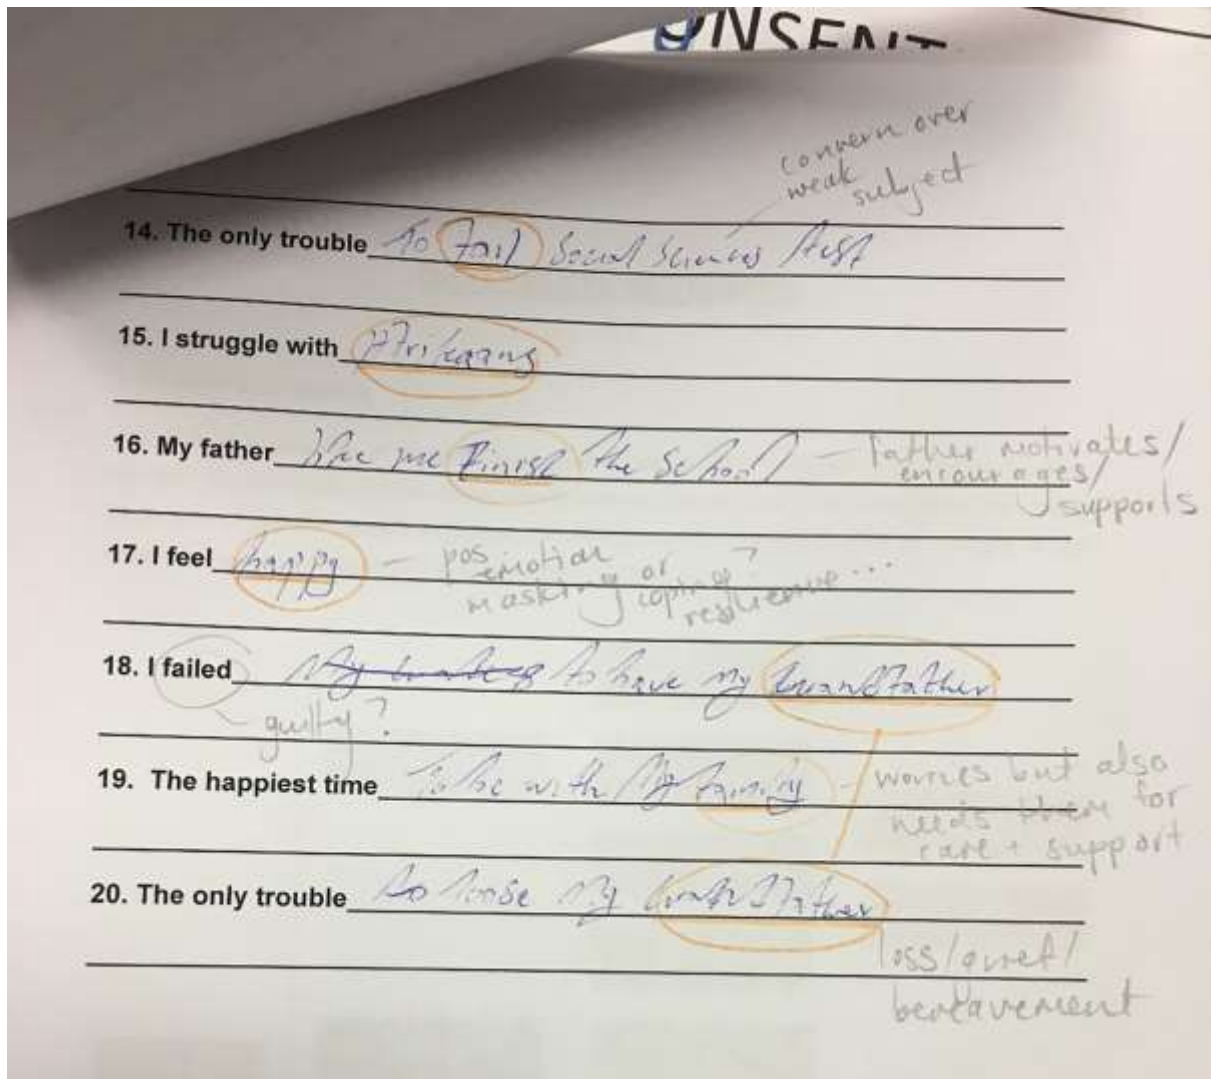 ONSENT
concern over
weak subject
14. The only trouble To fail Social Sciences test
15. I struggle with Afrikaans
16. My father like me Finish the School – father motivates/
encourages/
supports
17. I feel happy – pos emotion
masking or coping?
resilience ...
18. I failed to have my Grandfather
guilty?
19. The happiest time To be with My family – worries but also
needs them for
care + support
20. The only trouble to loose My Grandfather
loss/grief/
bereavement